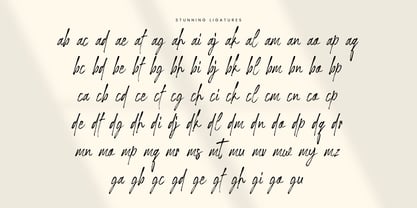 STUNNING LIGATURES
ab ac ad ae at ag ah ai aj ak al am an ao ap aq
bc bd be bt bg bh bi bj bk bl bm bn bo bp
ca cb cd ce ct cg ch ci ck cl cm cn co cp
de dt dg dh di dj dk dl dm dn do dp dq ds
mn mo mp mq mr ms mt mu mv mw mx my mz
ga gb gc gd ge gt gh gi go gu